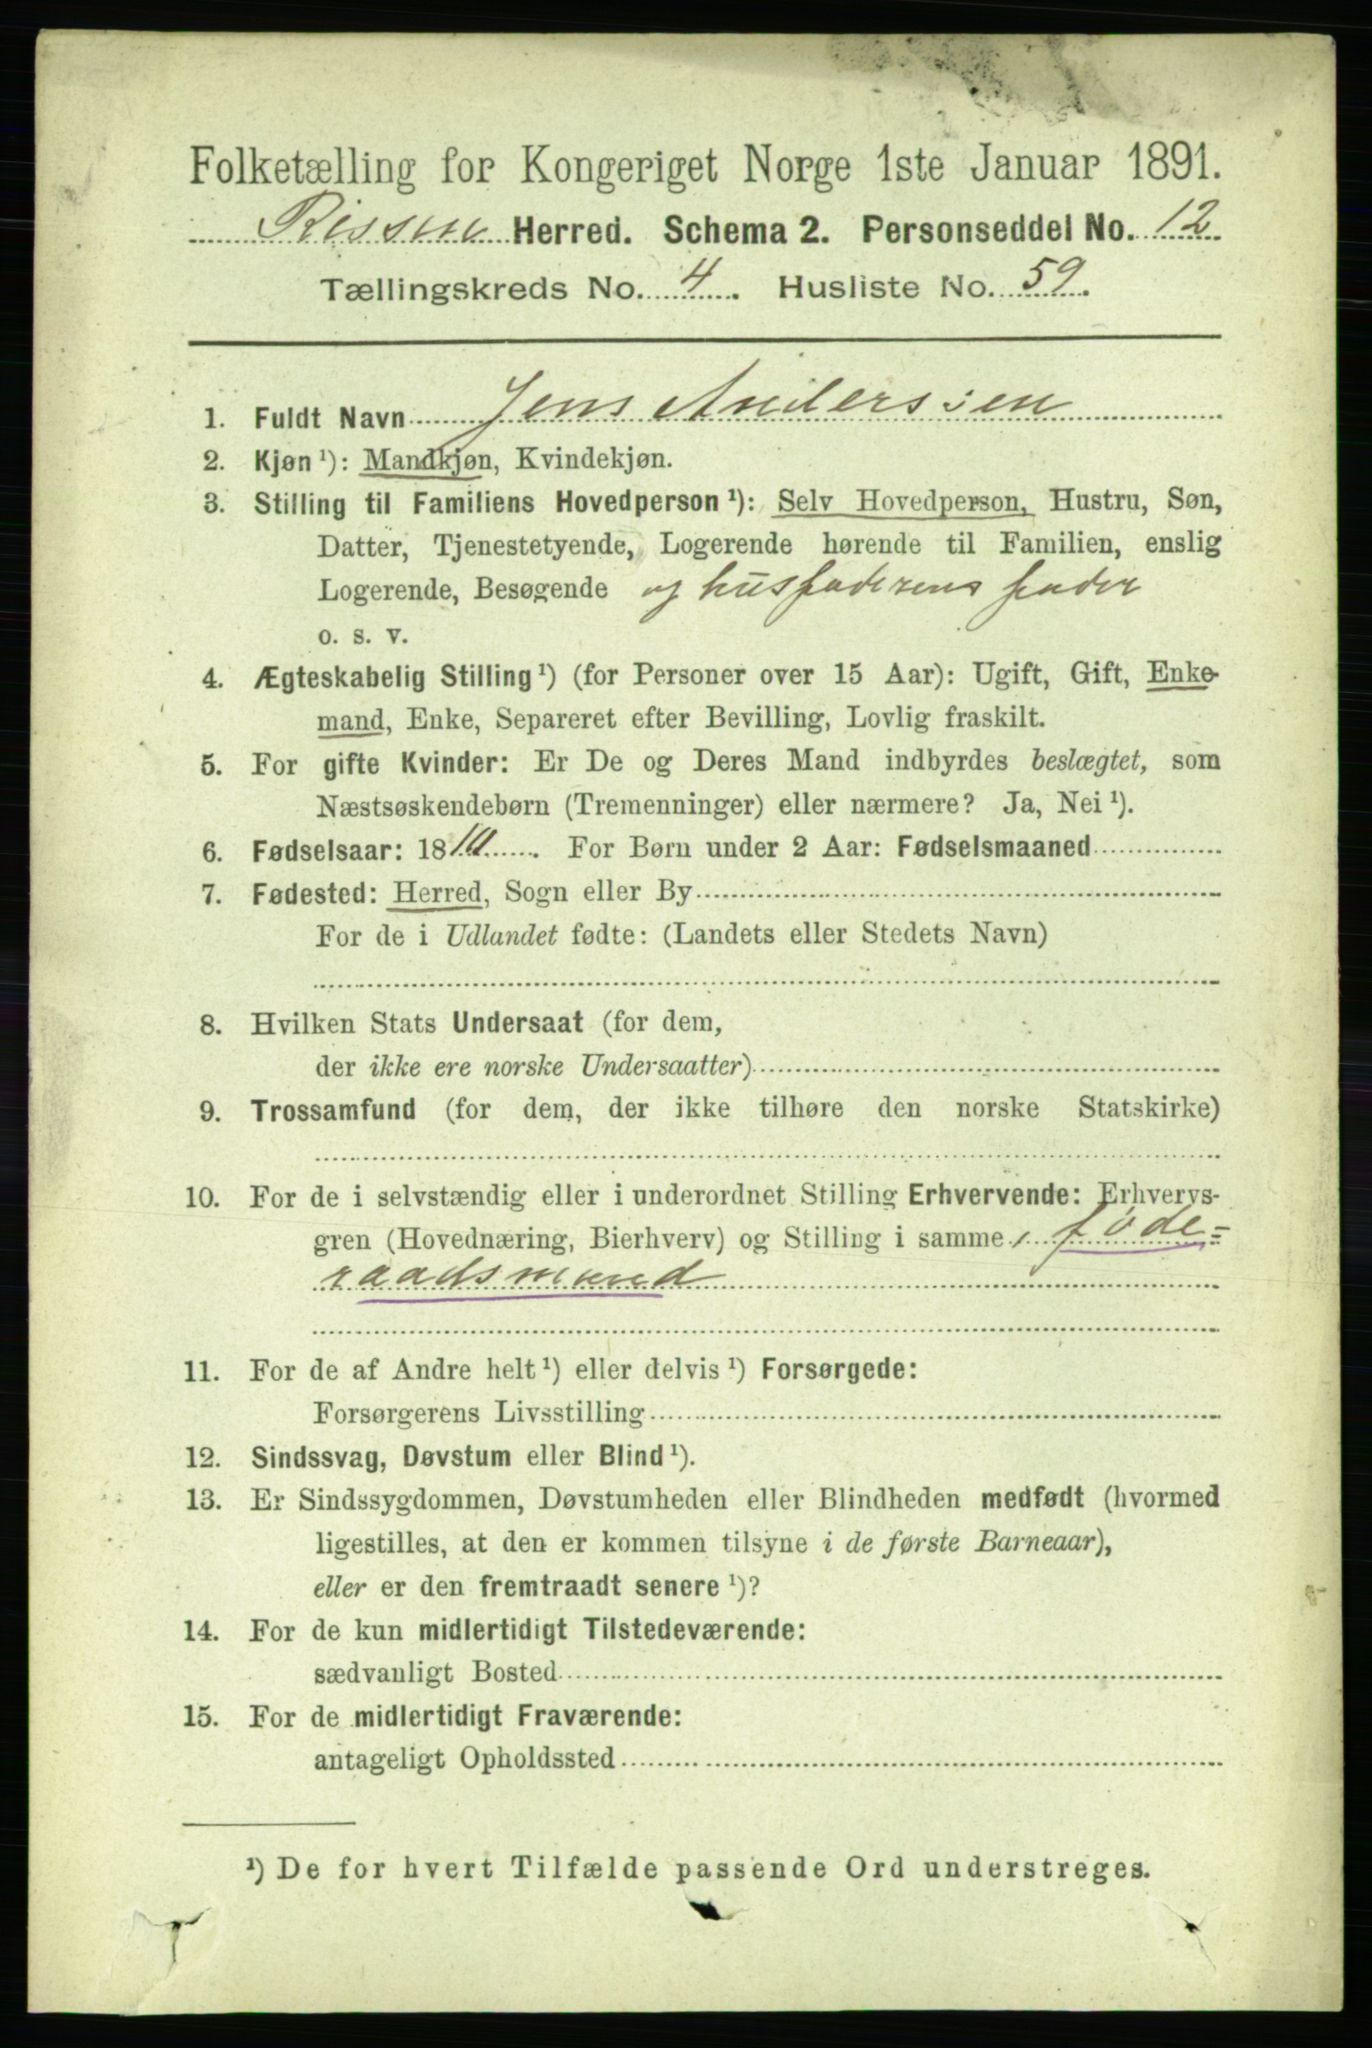 Folketælling for Kongeriget Norge 1ste Januar 1891.
Rissen Herred. Schema 2. Personseddel No. 12
Tællingskreds No. 4. Husliste No. 59.
1. Fuldt Navn Jens Anderssen
2. Kjøn ¹): Mandkjøn, Kvindekjøn.
3. Stilling til Familiens Hovedperson ¹): Selv Hovedperson, Hustru, Søn,
Datter, Tjenestetyende, Logerende hørende til Familien, enslig
Logerende, Besøgende og husfaderens fader
o. s. v.
4. Ægteskabelig Stilling ¹) (for Personer over 15 Aar): Ugift, Gift, Enke-
mand, Enke, Separeret efter Bevilling, Lovlig fraskilt.
5. For gifte Kvinder: Er De og Deres Mand indbyrdes beslægtet, som
Næstsøskendebørn (Tremenninger) eller nærmere? Ja, Nei ¹).
6. Fødselsaar: 18 . For Børn under 2 Aar: Fødselsmaaned
7. Fødested: Herred, Sogn eller By
For de i Udlandet fødte: (Landets eller Stedets Navn)
8. Hvilken Stats Undersaat (for dem,
der ikke ere norske Undersaatter)
9. Trossamfund (for dem, der ikke tilhøre den norske Statskirke)
10. For de i selvstændig eller i underordnet Stilling Erhvervende: Erhvervs-
gren (Hovednæring, Bierhverv) og Stilling i samme, føde=
raadsmand
11. For de af Andre helt ¹) eller delvis ¹) Forsørgede:
Forsørgerens Livsstilling
12. Sindssvag, Døvstum eller Blind ¹).
13. Er Sindssygdommen, Døvstumheden eller Blindheden medfødt (hvormed
ligestilles, at den er kommen tilsyne i de første Barneaar),
eller er den fremtraadt senere ¹)?
14. For de kun midlertidigt Tilstedeværende:
sædvanligt Bosted
15. For de midlertidigt Fraværende:
antageligt Opholdssted
¹) De for hvert Tilfælde passende Ord understreges.